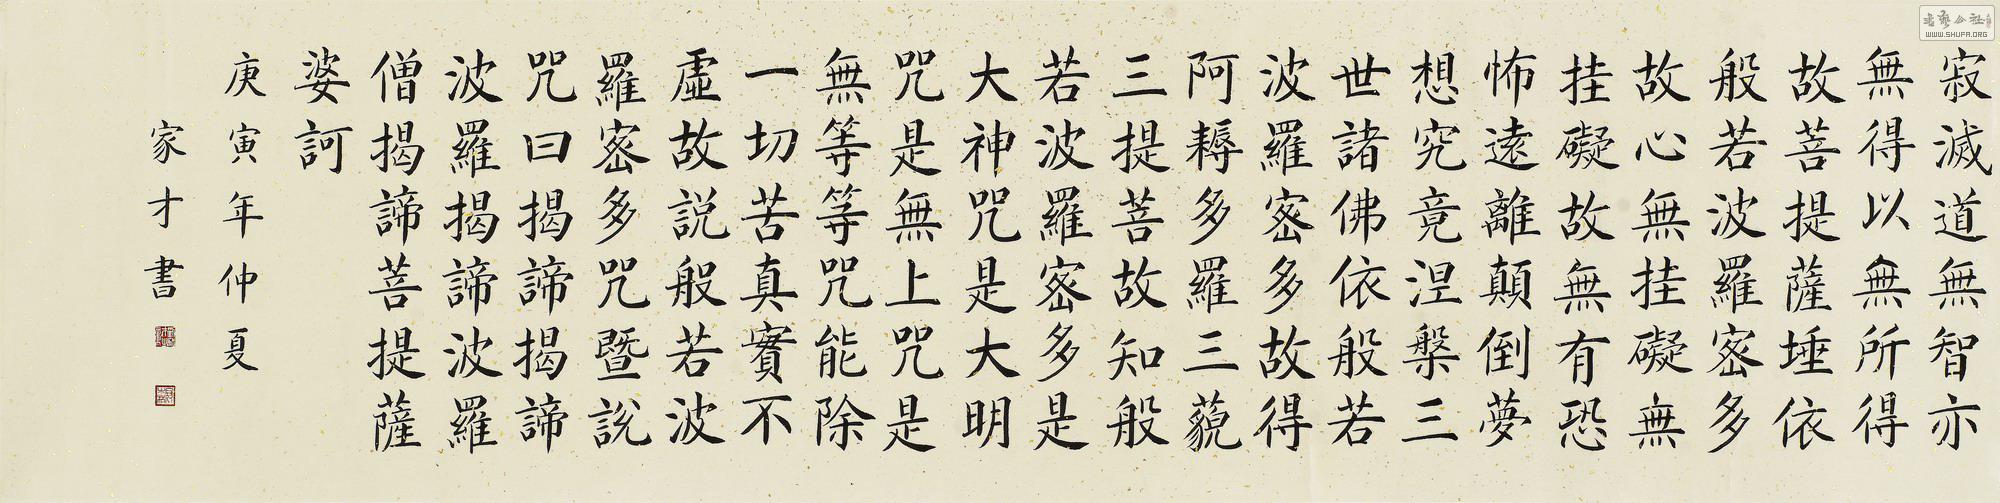 寂滅道無智亦
無得以無所得
故菩提薩埵依
般若波羅密多
故心無挂礙無
挂礙故無有恐
怖遠離顛倒夢
想究竟涅槃三
世諸佛依般若
波羅密多故得
阿耨多羅三藐
三提菩故知般
若波羅密多是
大神咒是大明
咒是無上咒是
無等等咒能除
一切苦真實不
虛故說般若波
羅密多咒暨說
咒曰揭諦揭諦
波羅揭諦波羅
僧揭諦菩提薩
婆訶
庚寅年仲夏
家才書
WWW.SHUFA.ORG